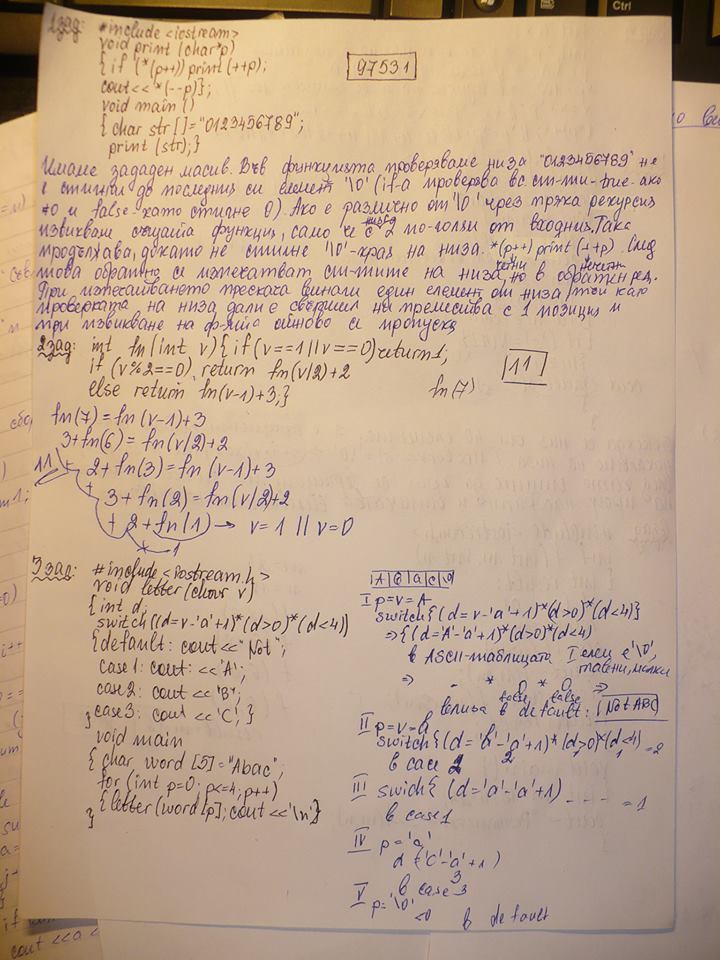 1зад: #include <iostream>
void print (char*p)
{ if (*(p++)) print (++p);
cout<< *(--p)};
void main ()
{ char str[]="0123456789";
print (str);}
97531
Имаме зададен масив. Във функцията проверяваме низа "0123456789" не
е стигнал до последния си елемент '\0' (if-а проверява вс. ст-ти-true-ако
≠0 и false-като стигне 0). Ако е различно от '\0' чрез пряка рекурсия
извикваме същата функция, само че с 2 по-голям от входния. Така
продължава, докато не стигне '\0'-край на низа. *(p++) print (++p). След
това обратно се изпечатват ст-тите на низа, но в обратен ред.
При изпечатването прескача винаги един елемент от низа, тъй като
проверката на низа дали е свършил ни премества с 1 позиция и
при извикване на ф-ята отново се пропуска
2зад: int fn(int v) { if (v==1 || v==0) return 1;
if (v%2==0) return fn(v/2)+2
else return fn(v-1)+3;}
fn(7)
11
fn(7) = fn(v-1)+3
3+fn(6) = fn(v/2)+2
11
2+fn(3) = fn (v-1)+3
+
3+fn(2) = fn(v/2)+2
+ 2+fn(1) → v=1 || v=0
1
3зад: #include <iostream.h>
void letter(char v)
{ int d;
switch((d=v-'a'+1)*(d>0)*(d<4))
{default: cout<<"Not";
case 1: cout: <<'A';
case 2: cout <<'B';
} case 3: cout <<'C'; }
void main
{ char word [5]="Abac";
for (int p=0; p<=4; p++)
{ letter (word [p]; cout <<'\n'}
}
A b a c \0
I p=v=A
switch{(d=v-'a'+1)*(d>0)*(d<4)}
⇒{(d='A'-'a'+1)*(d>0)*(d<4)
в ASCII-таблицата I елем е '\0',
главни, малки
⇒ - * 0 * 0 ⇒
false false
влиза в default: Not ABC
II p=v=b
switch{(d='b'-'a'+1)*(d>0)*(d<4) =2
2 1 1
в case 2
III swich{ (d='a'-'a'+1) - - - - =1
в case 1
IV p='a'
d=('c'-'a'+1)
3
в case 3
V p='\0'
<0 в default
Ctrl
cout <<a <